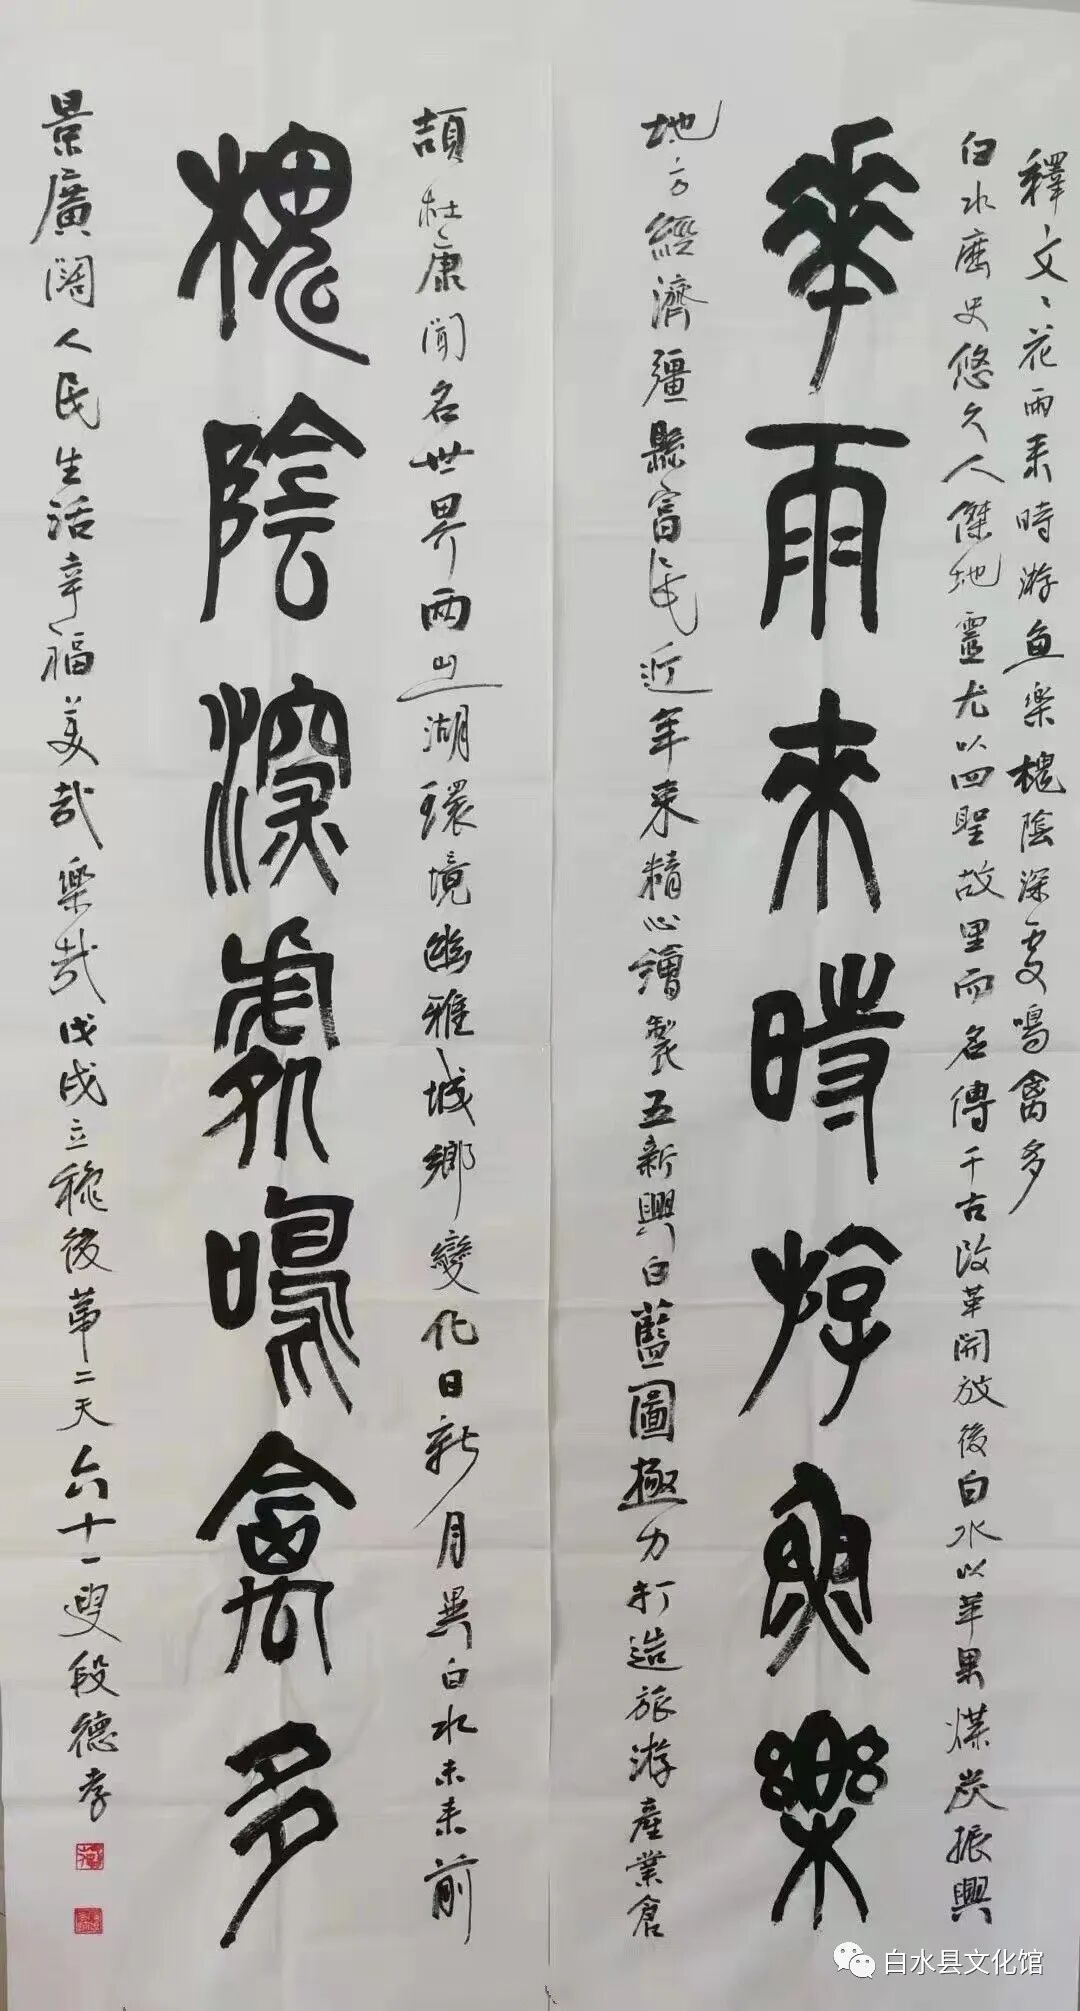 釋文：花雨来時游魚樂槐陰深處鳴禽多
白水歷史悠久人傑地靈尤以四聖故里而名傳千古改革開放後白水以苹果煤炭振興
華雨來時游魚樂
地方經濟彊縣富民近年来精心繪製五新興白藍圖極力打造旅游產業倉
頡杜康聞名世界兩山一湖環境幽雅城鄉變化日新月異白水未来前
槐陰深處鳴禽多
景廣闊人民生活幸福美哉樂哉戊戌立秋後第二天六十一叟段德孝
白水县文化馆